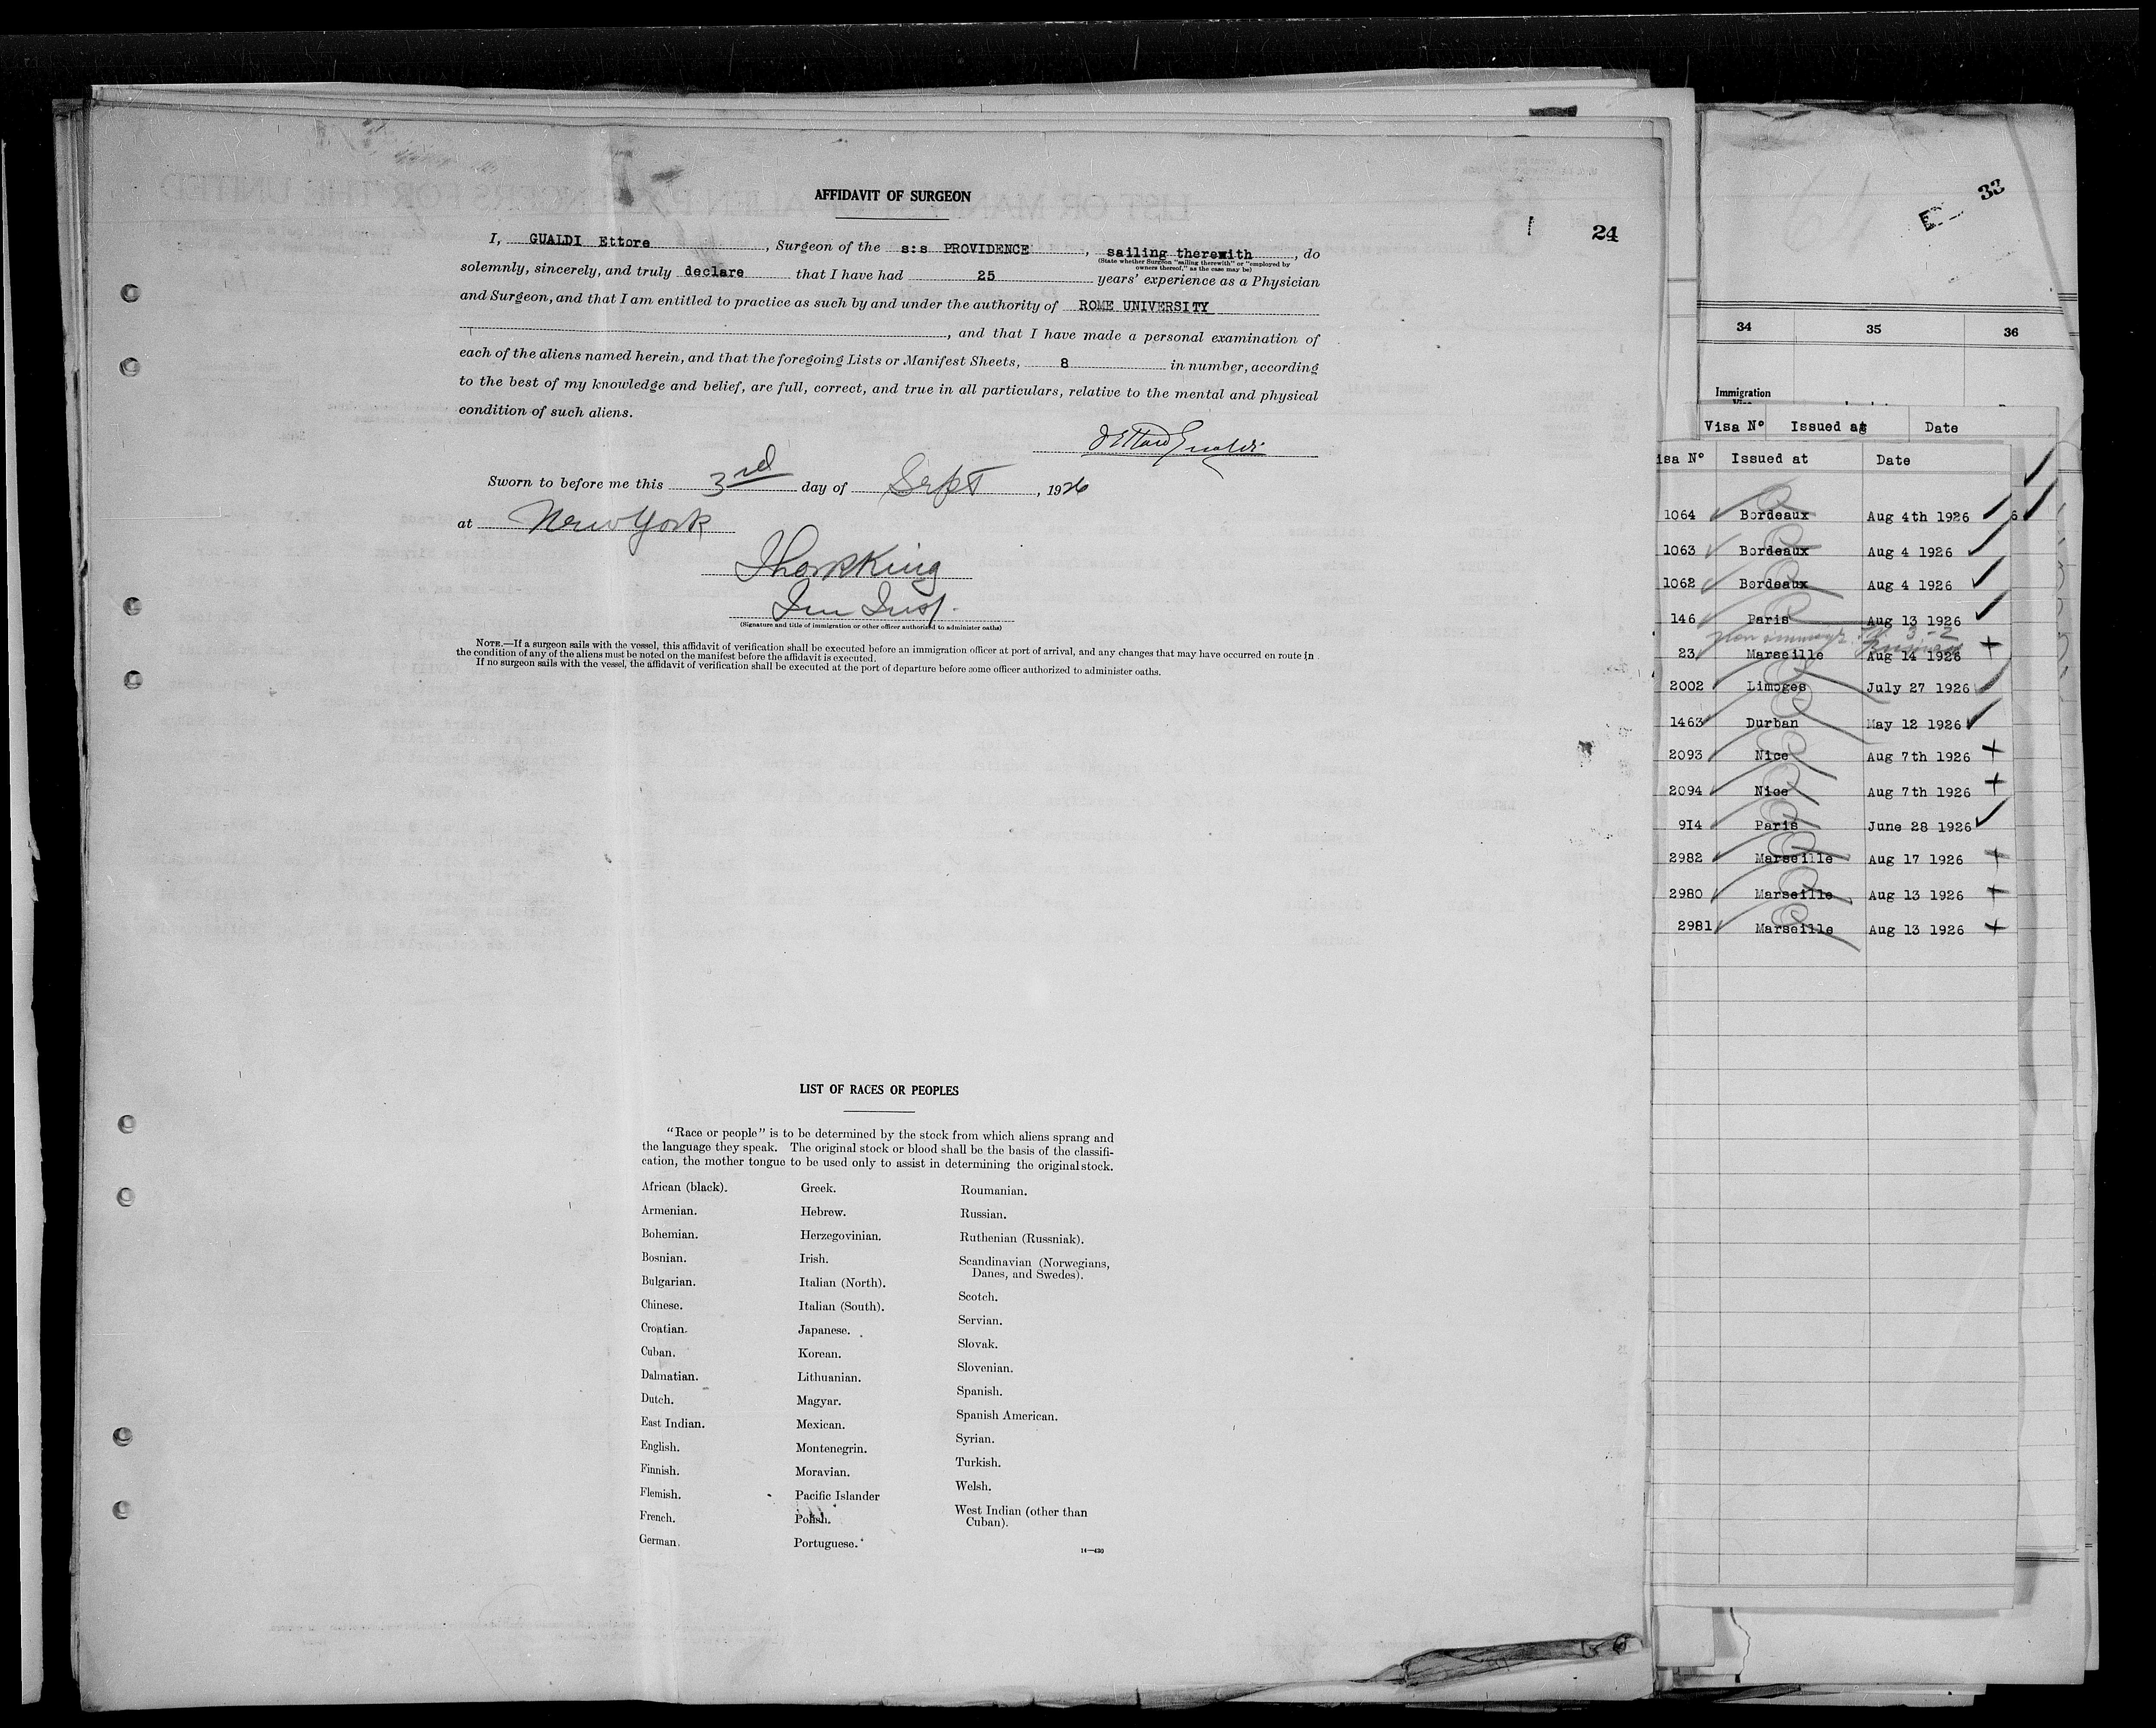 AFFIDAVIT OF SURGEON
24
33
I, GUALDI Ettore, Surgeon of the s:s PROVIDENCE, sailing therewith, do
(State whether Surgeon "sailing therewith" or "employed by
owners thereof," as the case may be)
solemnly, sincerely, and truly declare that I have had 25 years' experience as a Physician
and Surgeon, and that I am entitled to practice as such by and under the authority of ROME UNIVERSITY
, and that I have made a personal examination of
each of the aliens named herein, and that the foregoing Lists or Manifest Sheets, 8 in number, according
to the best of my knowledge and belief, are full, correct, and true in all particulars, relative to the mental and physical
condition of such aliens.
Sworn to before me this 3rd day of Sept, 1926
at New York
King
Imm Insp.
(Signature and title of immigration or other officer authorized to administer oaths)
NOTE.—If a surgeon sails with the vessel, this affidavit of verification shall be executed before an immigration officer at port of arrival, and any changes that may have occurred en route in
the condition of any of the aliens must be noted on the manifest before the affidavit is executed.
If no surgeon sails with the vessel, the affidavit of verification shall be executed at the port of departure before some officer authorized to administer oaths.
LIST OF RACES OR PEOPLES
"Race or people" is to be determined by the stock from which aliens sprang and
the language they speak. The original stock or blood shall be the basis of the classifi-
cation, the mother tongue to be used only to assist in determining the original stock.
African (black).
Armenian.
Bohemian.
Bosnian.
Bulgarian.
Chinese.
Croatian.
Cuban.
Dalmatian.
Dutch.
East Indian.
English.
Finnish.
Flemish.
French.
German.
Greek.
Hebrew.
Herzegovinian.
Irish.
Italian (North).
Italian (South).
Japanese.
Korean.
Lithuanian.
Magyar.
Mexican.
Montenegrin.
Moravian.
Pacific Islander
Polish.
Portuguese.
Roumanian.
Russian.
Ruthenian (Russniak).
Scandinavian (Norwegians,
Danes, and Swedes).
Scotch.
Servian.
Slovak.
Slovenian.
Spanish.
Spanish American.
Syrian.
Turkish.
Welsh.
West Indian (other than
Cuban).
14—430
34 35 36
Immigration
Visa Nº Issued at Date
isa Nº Issued at Date
1064 Bordeaux Aug 4th 1926 6
1063 Bordeaux Aug 4 1926
1062 Bordeaux Aug 4 1926
146 Paris Aug 13 1926
3-2
23 Marseille Aug 14 1926
2002 Limoges July 27 1926
1463 Durban May 12 1926
2093 Nice Aug 7th 1926
2094 Nice Aug 7th 1926
914 Paris June 28 1926
2982 Marseille Aug 17 1926
2980 Marseille Aug 13 1926
2981 Marseille Aug 13 1926